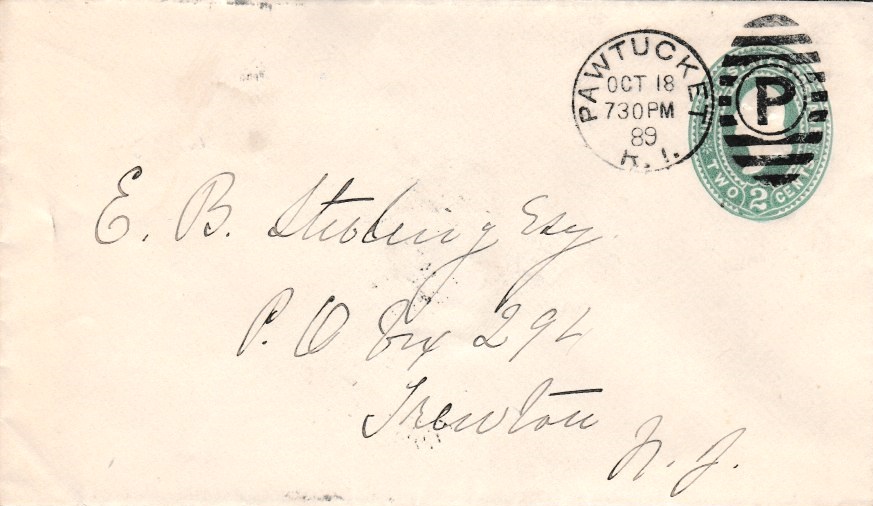 PAWTUCKET
OCT 18
730PM
89
R. I.
P
TWO 2 CENTS
E. B. Stebing Esq
P. O Box 294
Trenton
N. J.